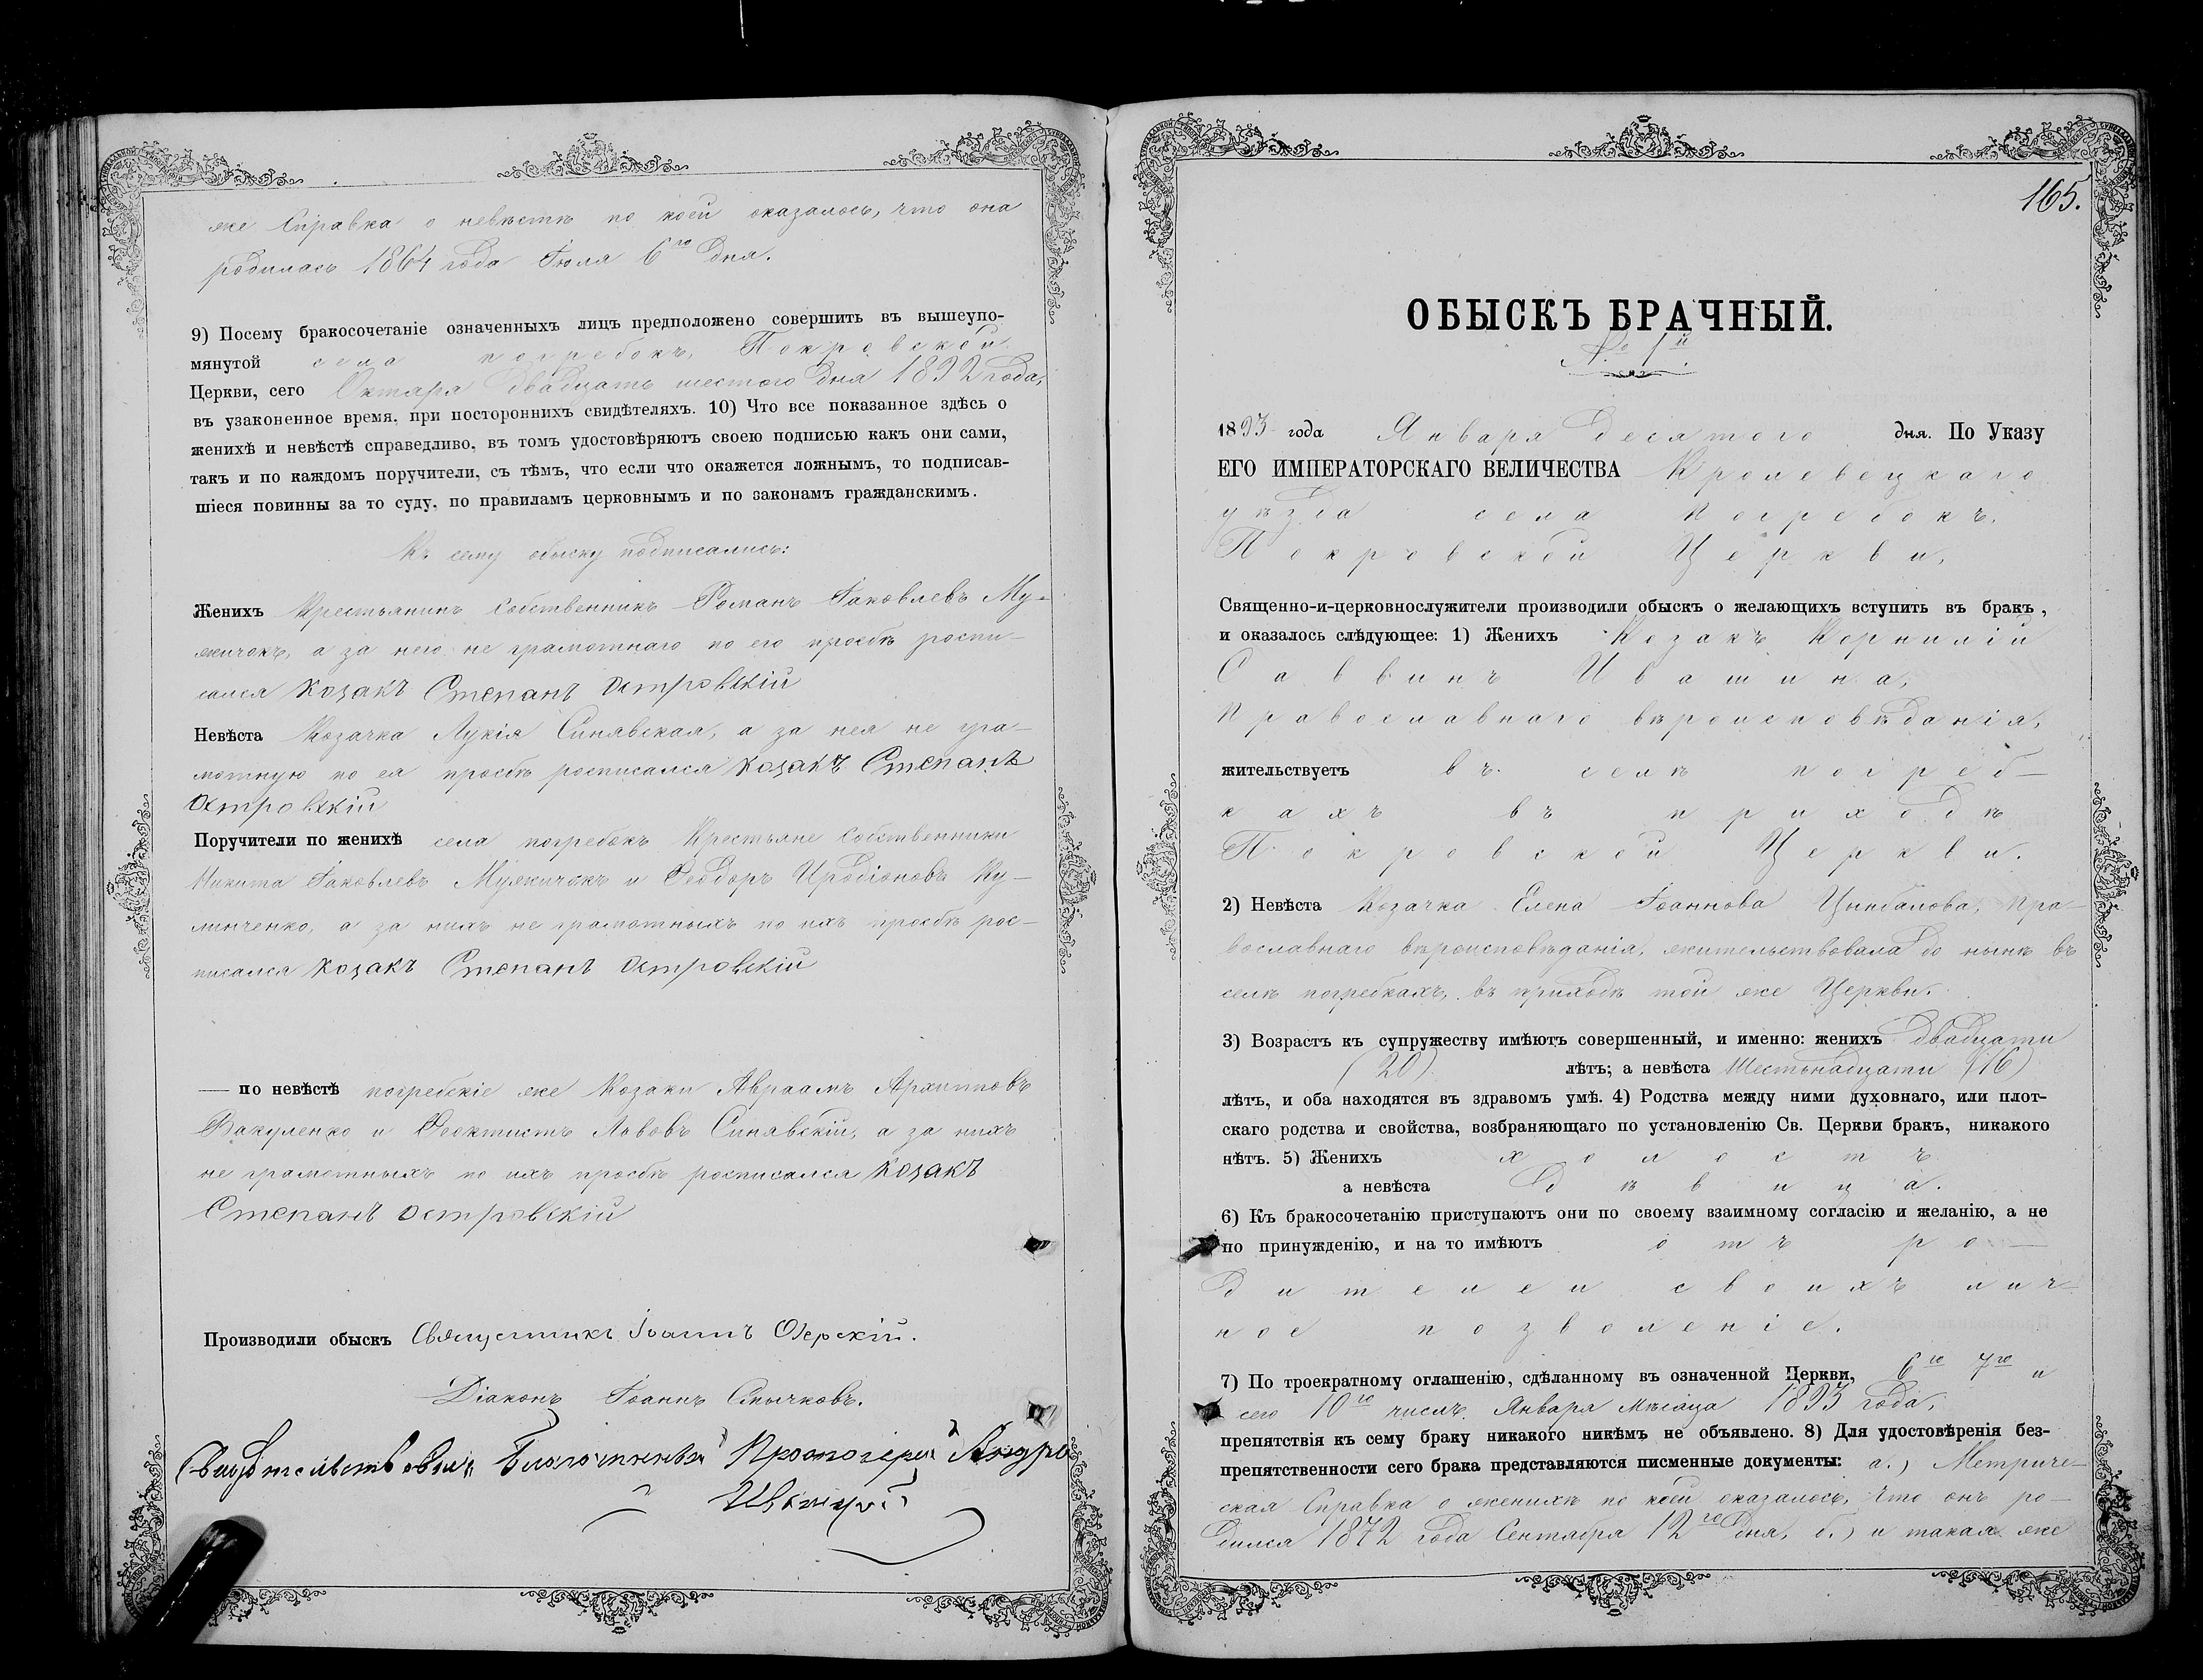 же Справка о невѣстѣ по коей оказалось, что она
родилась 1864 года Іюля 6го дня.
9) Посему бракосочетаніе означенныхъ лицъ предположено совершить въ вышеупо-
мянутой села погребокъ, Покровской
Церкви, сего Октября двадцать шестого дня 1892 года,
въ узаконенное время, при постороннихъ свидѣтеляхъ. 10) Что все показанное здѣсь о
женихѣ и невѣстѣ справедливо, въ томъ удостовѣряютъ своею подписью какъ они сами,
такъ и по каждомъ поручители, съ тѣмъ, что если что окажется ложнымъ, то подписав-
шіеся повинны за то суду, по правиламъ церковнымъ и по законамъ гражданскимъ.
Къ сему обыску подписались:
Женихъ Крестьянинъ Собственникъ Романъ Іаковлевъ Му-
жичокъ, а за него не грамотнаго по его просьбѣ роспи-
сался козакъ Степанъ Островскій
Невѣста Козачка Лукія Синявская, а за нея не гра-
мотную по ея просьбѣ росписался козакъ Степанъ
Островскій
Поручители по женихѣ села погребокъ Крестьяне Собственники
Никита Іаковлевъ Мужичокъ и Феодоръ Иродіоновъ Ку-
линченко, а за нихъ не грамотныхъ по ихъ просьбѣ рос-
писался козакъ Степанъ Островскій
— по невѣстѣ погребскіе же Козаки Авраамъ Архиповъ
Вакуленко и Феоктистъ Львовъ Синявскій, а за нихъ
не грамотныхъ по ихъ просьбѣ росписался козакъ
Степанъ Островскій
Производили обыскъ Священникъ Іоаннъ Озерскій.
Діаконъ Іоаннъ Смычковъ.
Свидѣтельствовалъ Благочинный Протоіерей Андрей
165.
ОБЫСКЪ БРАЧНЫЙ.
№ 1й.
1893 года Января десятого дня. По Указу
ЕГО ИМПЕРАТОРСКАГО ВЕЛИЧЕСТВА Кролевецкаго
уѣзда села погребокъ,
Покровской Церкви,
Священно-и-церковнослужители производили обыскъ о желающихъ вступить въ бракъ,
и оказалось слѣдующее: 1) Женихъ Козакъ Корнилій
Саввинъ Ивашина,
Православнаго вѣроисповѣданія,
жительствуетъ въ селѣ погреб-
кахъ въ приходѣ
Покровской Церкви.
2) Невѣста Козачка Елена Іоаннова Цимбалова, Пра-
вославнаго вѣроисповѣданія, жительствовала до нынѣ въ
селѣ погребкахъ, въ приходѣ той же Церкви.
3) Возрастъ къ супружеству имѣютъ совершенный, и именно: женихъ двадцати
(20) лѣтъ; а невѣста Шестьнадцати (16)
лѣтъ, и оба находятся въ здравомъ умѣ. 4) Родства между ними духовнаго, или плот-
скаго родства и свойства, возбраняющаго по установленію Св. Церкви бракъ, никакого
нѣтъ. 5) Женихъ холостъ
а невѣста дѣвица.
6) Къ бракосочетанію приступаютъ они по своему взаимному согласію и желанію, а не
по принужденію, и на то имѣютъ отъ ро-
дителей своихъ лич-
ное позволеніе.
7) По троекратному оглашенію, сдѣланному въ означенной Церкви, 6го 7го и
сего 10го числъ Января Мѣсяца 1893 года,
препятствія къ сему браку никакого никѣмъ не объявлено. 8) Для удостовѣренія без-
препятственности сего брака представляются писменные документы: а.) Метриче-
ская Справка о женихѣ по коей оказалось, что онъ ро-
дился 1872 года Сентября 12го дня, б.) и такая же